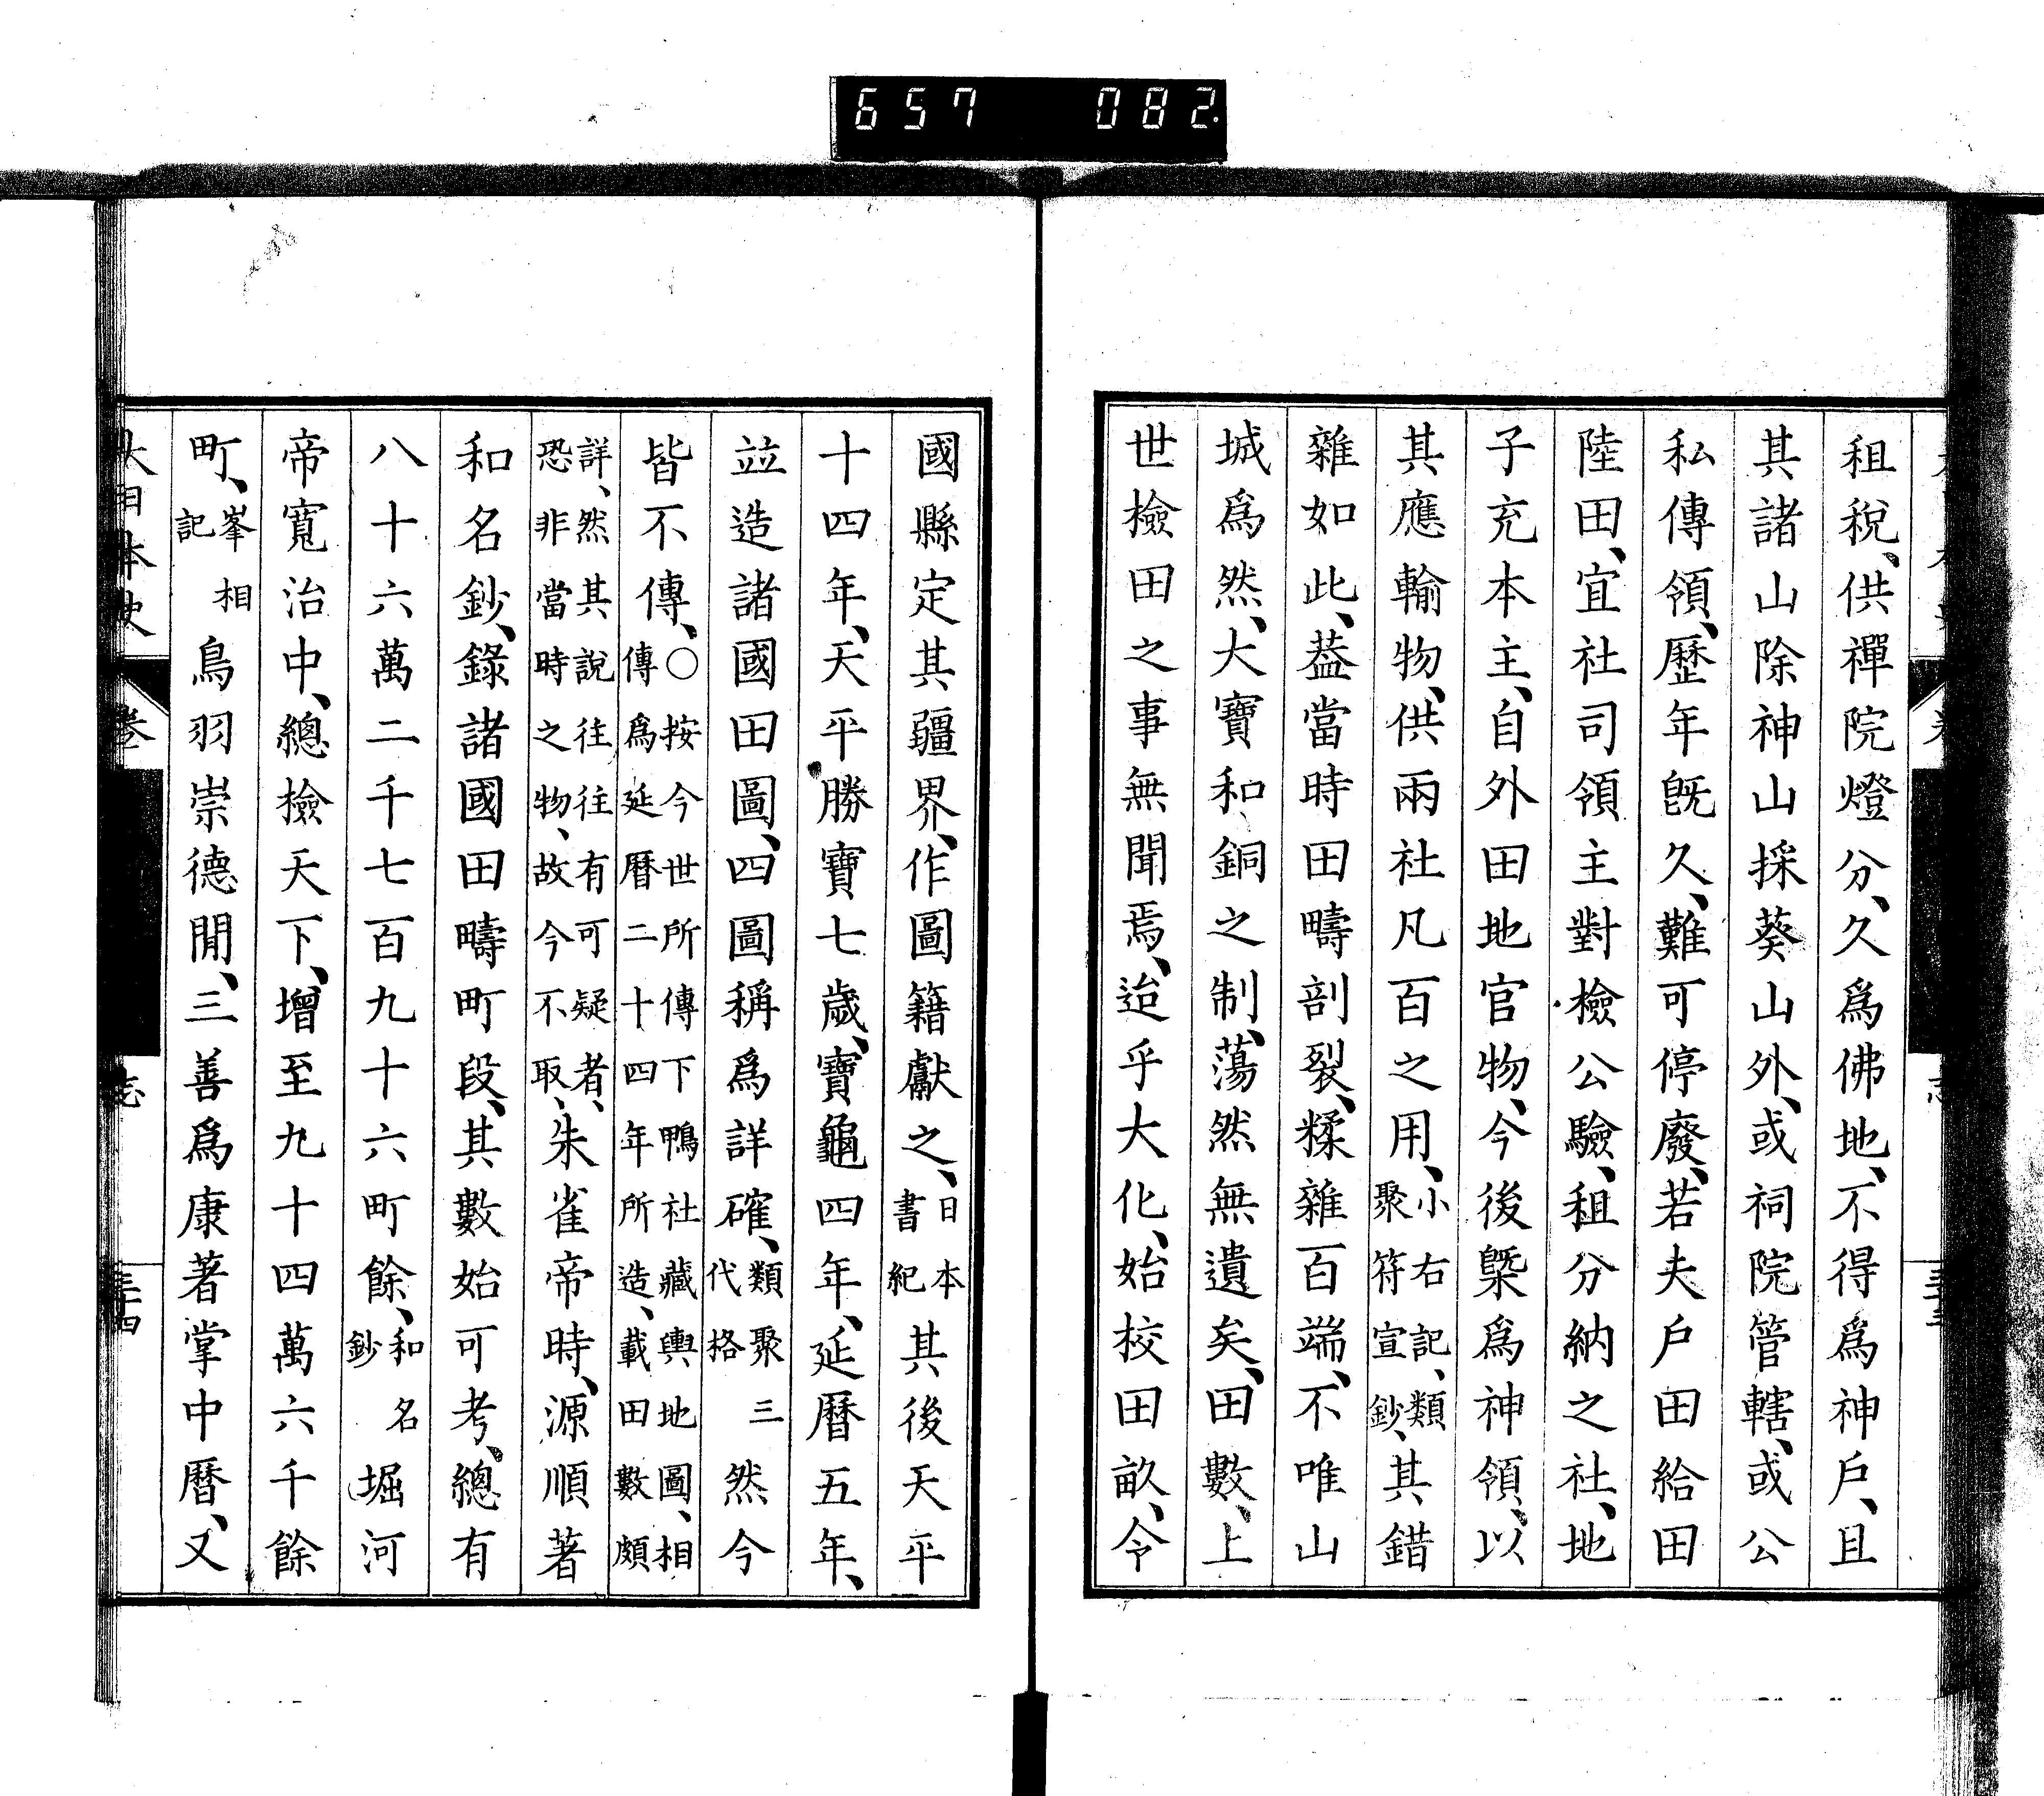 657 082
租税、供禪院燈分、久爲佛地、不得爲神戶、且
其諸山除神山採葵山外、或祠院管轄、或公
私傳領、歷年旣久、難可停廢、若夫戶田給田
陸田、宜社司領主對檢公驗、租分納之社、地
子充本主、自外田地官物、今後槩爲神領、以
其應輸物、供兩社凡百之用、小右記、類聚符宣鈔、其錯
雜如此、葢當時田疇剖裂、糅雜百端、不唯山
城爲然、大寶和銅之制、蕩然無遺矣、田數、上
世檢田之事無聞焉、迨乎大化、始校田畝、令
國縣定其疆界、作圖籍獻之、日本書紀其後天平
十四年、天平勝寶七歲、寶龜四年、延曆五年、
竝造諸國田圖、四圖稱爲詳確、類聚三代格然今
皆不傳、○按今世所傳下鴨社藏輿地圖、相傳爲延曆二十四年所造、載田數頗
詳、然其說往往有可疑者、恐非當時之物、故今不取、朱雀帝時、源順著
和名鈔、錄諸國田疇町段、其數始可考、總有
八十六萬二千七百九十六町餘、和名鈔堀河
帝寬治中、總檢天下、增至九十四萬六千餘
町、峯相記鳥羽崇德閒、三善爲康著掌中曆、又
大日本史 卷 志 三十四